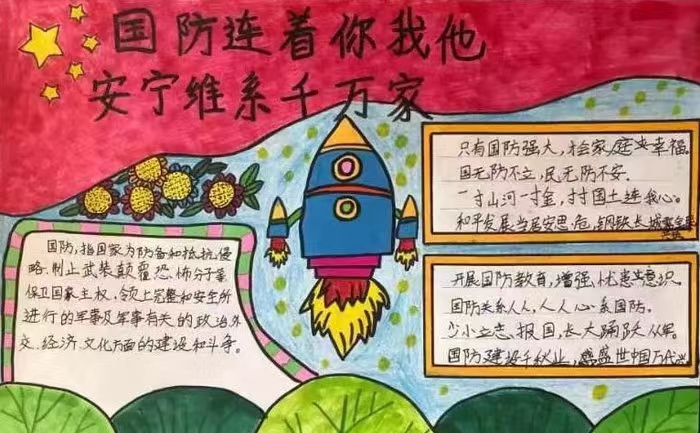 国防连着你我他
安宁维系千万家
国防,指国家为防备和抵抗,侵
略,制止武装颠覆,恐怖分子等
保卫国家主权、领土完整和安全所
进行的军事及军事有关的政治外
交、经济、文化方面的建设和斗争。
只有国防强大,才会家庭幸福。
国无防不立,民无防不安.
一寸山河一寸金,寸寸国土连我心。
和平发展当居安思危,钢铁长城
开展国防教育,增强忧患意识.
国防关系人人,人人心系国防。
少小立志报国,长大踊跃从军。
国防建设千秋业,盛世中国万代